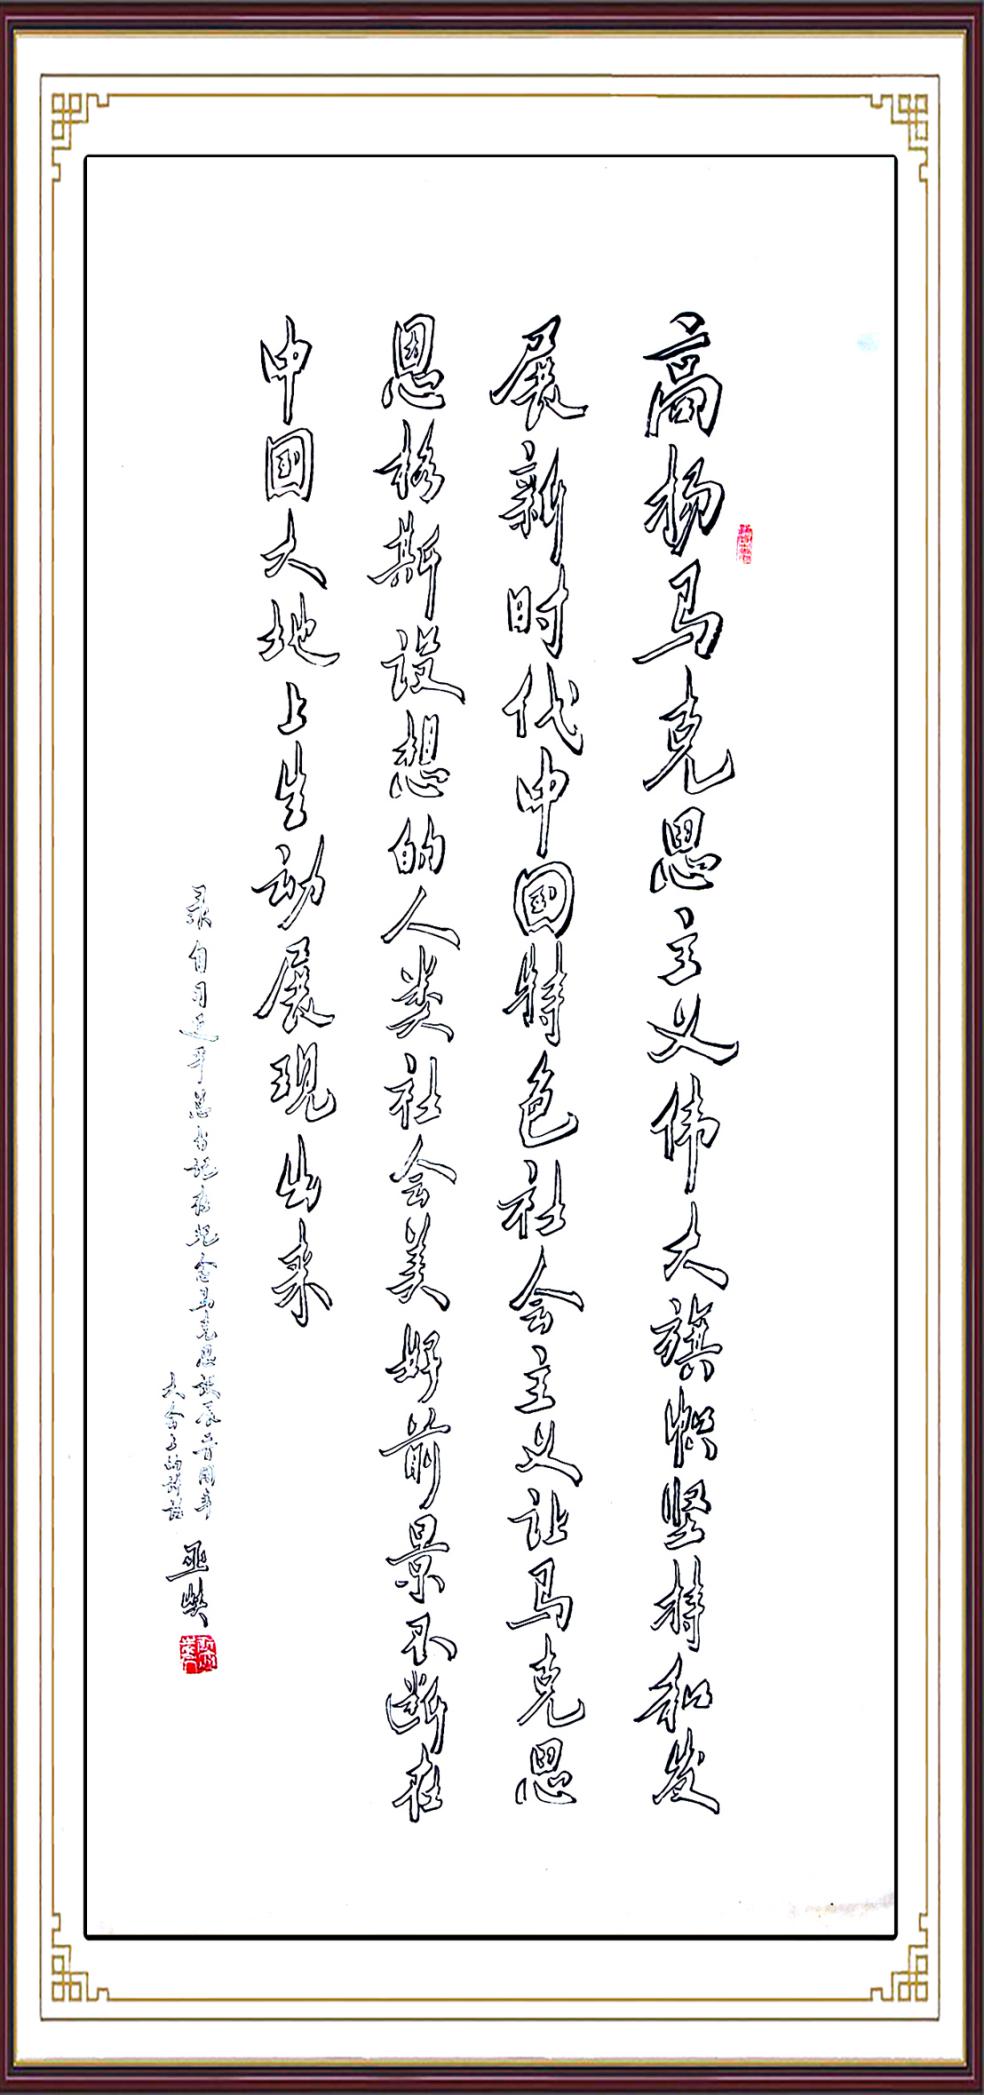 高扬马克思主义伟大旗帜坚持和发
展新时代中国特色社会主义让马克思
恩格斯设想的人类社会美好前景不断在
中国大地上生动展现出来
录自习近平总书记在纪念马克思诞辰二百周年
大会上的讲话